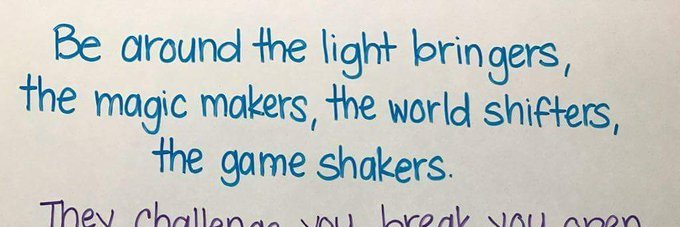 Be around the light bringers,
the magic makers, the world shifters,
the game shakers.
They challenge you break you open